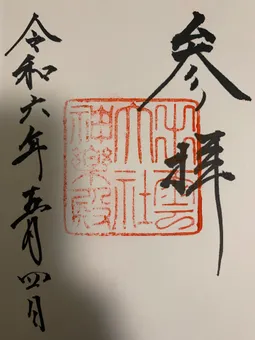 参拝
出雲
大社
神樂殿
令和六年五月四日